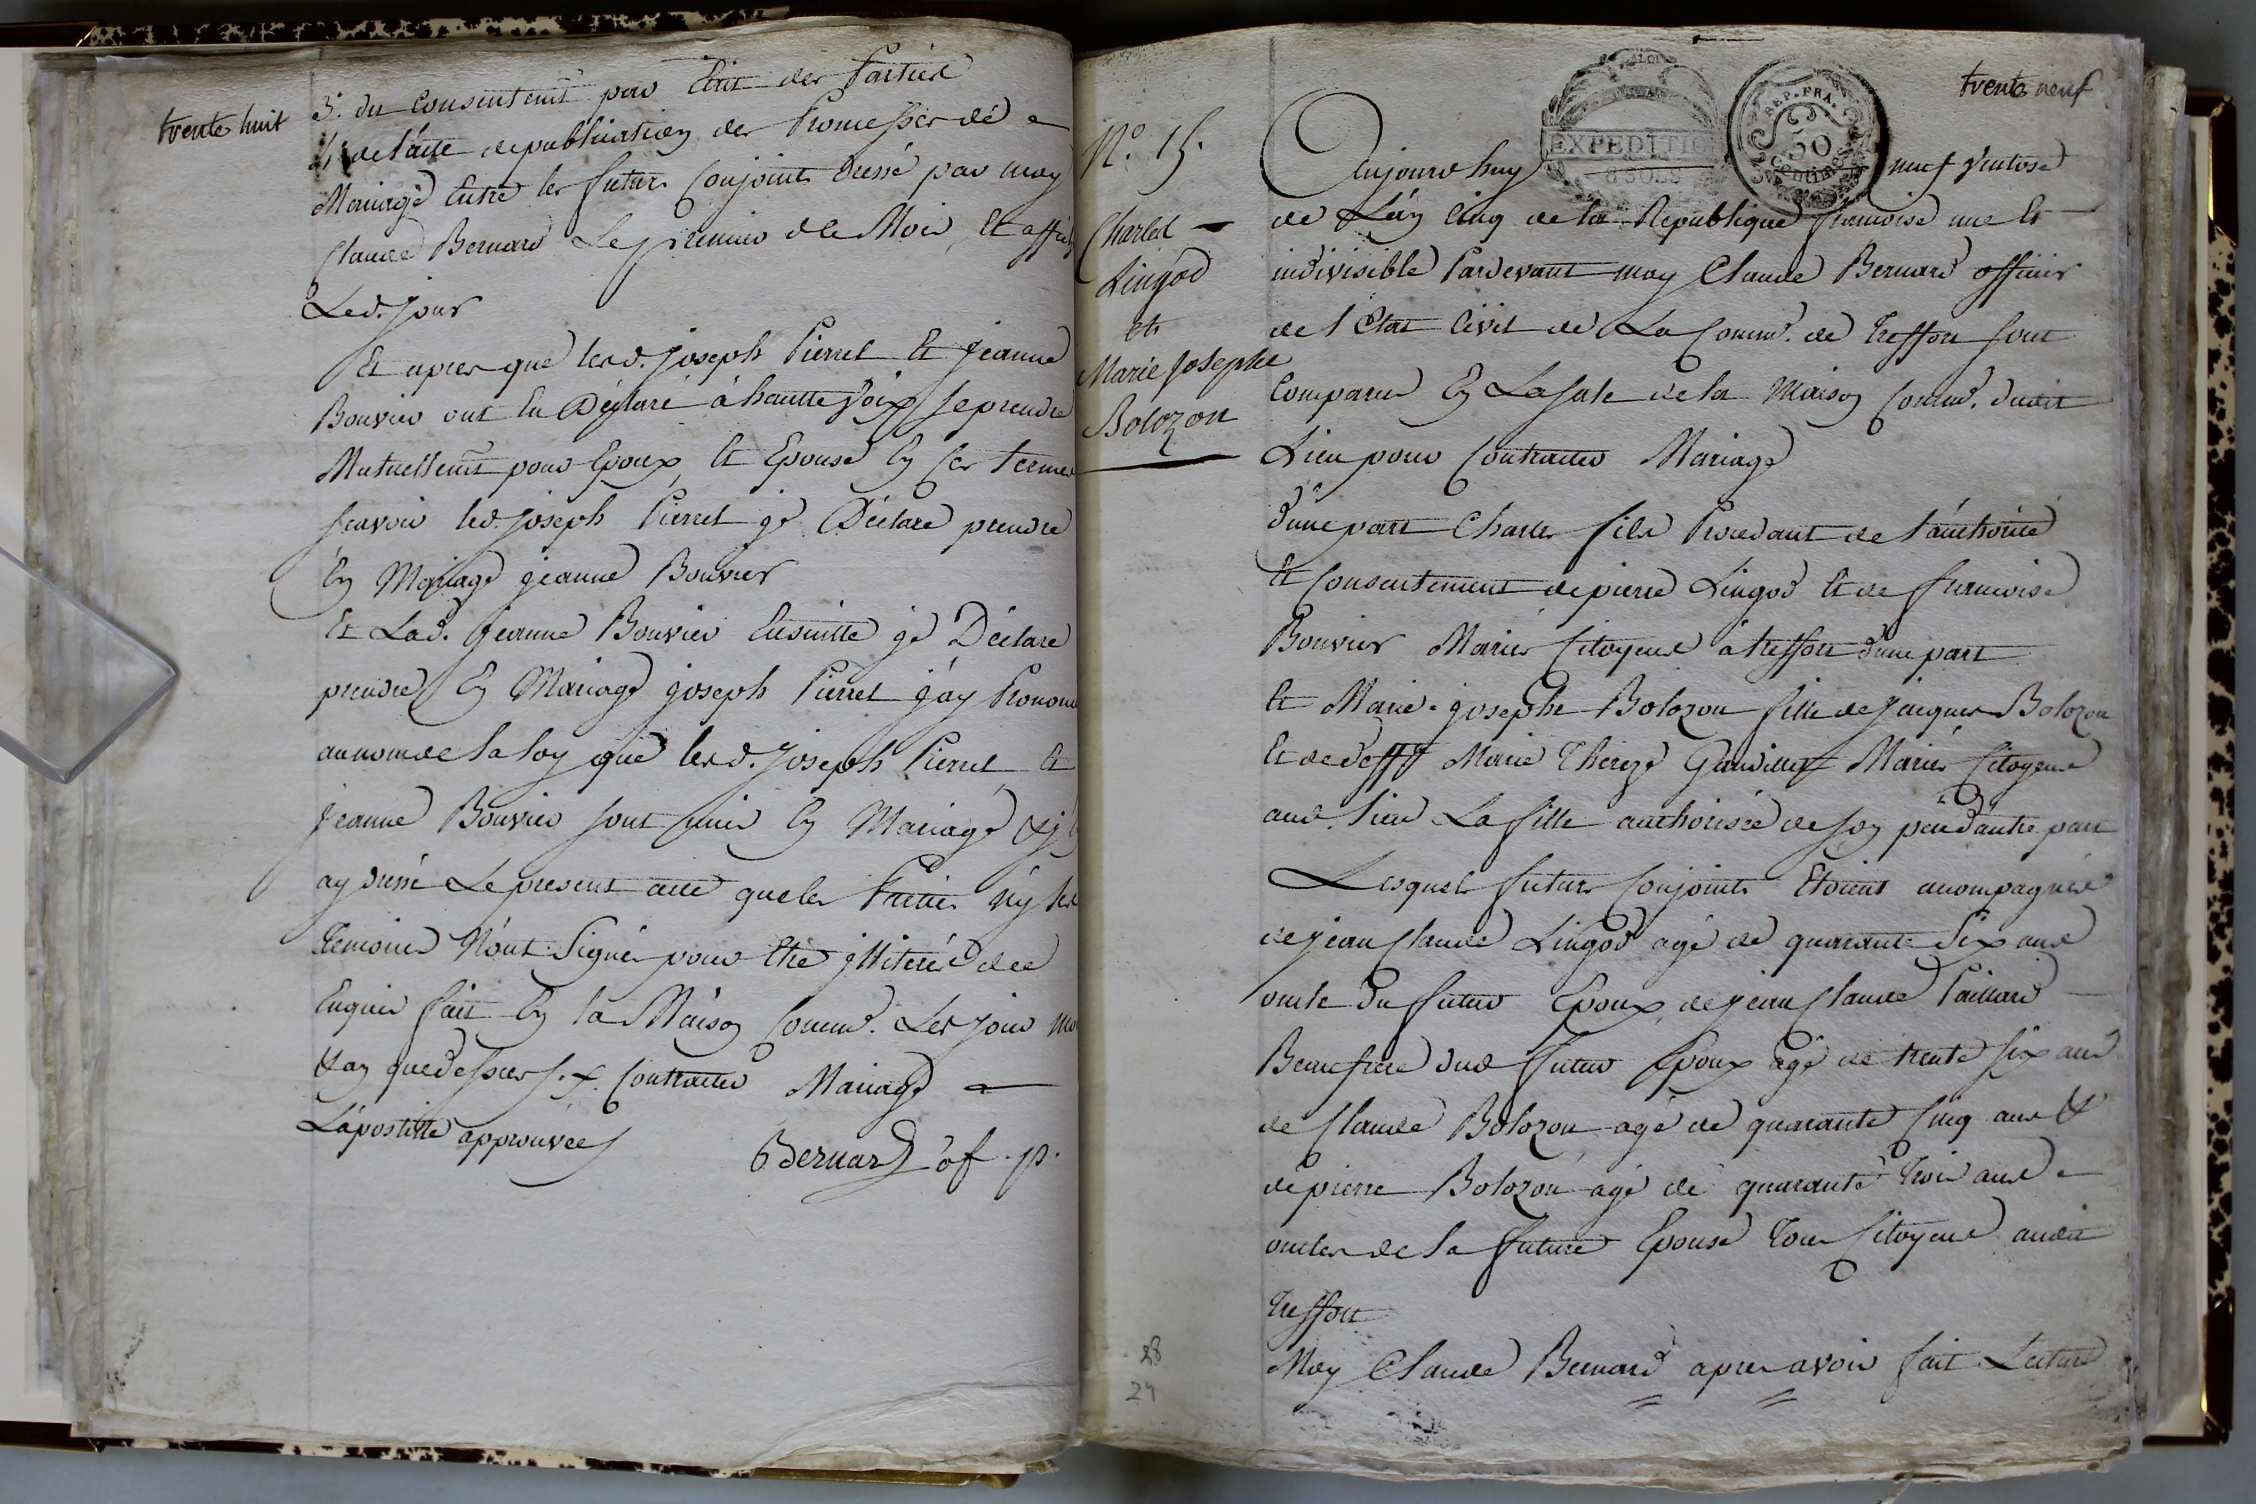 trente huit
3.° du consentemt par Ecrit des Parties
4.° de l'acte de publication des Promesses de
Mariage Entre les futurs Conjoints Dressé par moy
Claude Bernard Le premier de Mois, Et affiché
Led. jour
Et apres que lesd. joseph Pierret Et jeanne
Bouvier ont Eu Déclaré à hautte Voix se prendre
Mutuellemt pour Epoux, Et Epouse En Ces termes
scavoir led. joseph Pierret je Déclare prendre
En Mariage jeanne Bouvier
Et Lad. jeanne Bouvier Ensuitte je Déclare
prendre En Mariage joseph Pierret j'ay Prononcé
au nom de la loy que lesd. joseph Pierret Et
jeanne Bouvier sont unis En Mariage &
ay dressé Le present acte que les Parties ny les
Temoins N'ont Signés pour Etre illiterés de ce
Enquis fait En la Maison Commue. Les jour mois
& an que dessus s. x. Contracter Mariage
L'apostille approuvée
Bernard of. p.
trente neuf
EXPEDITION
6 SOLS
REP. FRA.
50
CENTIMES
N.° 15.
Charles
Lingod
et
Marie Josephe
Bolozon
Aujourd'huy neuf Ventose
de L'an Cinq de la Republique francoise une Et
indivisible Pardevant moy Claude Bernard officier
de l'Etat Civil de La Commue. de Treffort sont
Comparus En La Sale de la Maison Commue. dudit
Lieu pour Contracter Mariage
d'une part Charles fils Procedant de l'authorité
Et Consentement de pierre Lingod Et de francoise
Bouvier Mariés Citoyens à treffort d'une part
Et Marie-josephe Bolozon fille de jacques Bolozon
Et de defft Marie Thereze Mariés Citoyens
aud. lieu La fille authorisée de son pere d'autre part
Lesquels futurs Conjoints Etoient accompagnés
de jean Claude Lingod agé de quarante Six ans
oncle du futur Epoux, de jean Claude Paillard
Beaufrere dud futur Epoux agé de trente six ans
de Claude Bolozon agé de quarante Cinq ans &
de pierre Bolozon agé de quarante Trois ans
oncles de la future Epouse Tous Citoyens audit
Treffort
Moy Claude Bernard apres avoir fait Lecture
28
24